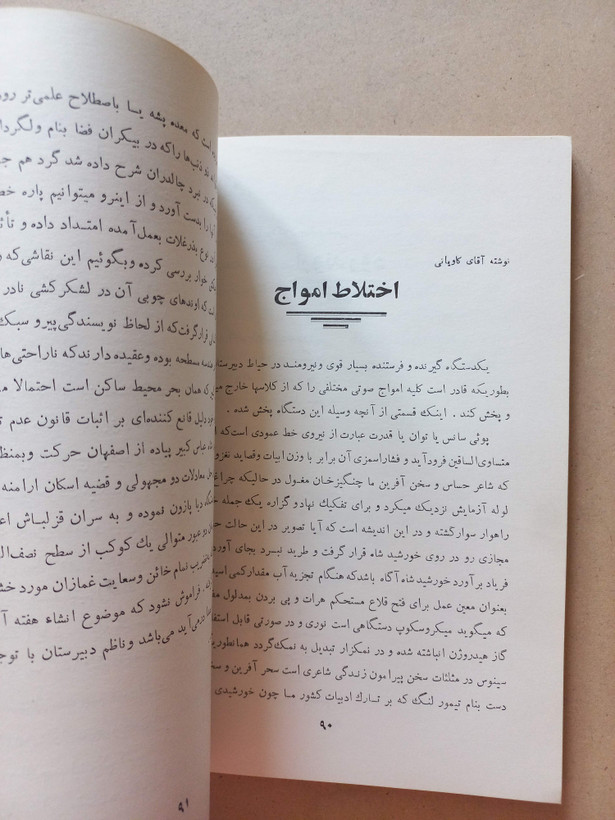 نوشته آقای کاویانی
اختلاط امواج
یکدستگاه گیرنده و فرستنده بسیار قوی و نیرومند در حیاط دبیرستا
بطوریکه قادر است کلیه امواج صوتی مختلفی را که از کلاسها خارج می
و پخش کند . اینک قسمتی از آنچه وسیله این دستگاه پخش شده .
پوئی سانس یا توان یا قدرت عبارت از نیروی خط عمودی است‌که
متساوی‌الساقین فرودآید و فشاراسمزی آن برابر با وزن ابیات وقصاید نغزو
که شاعر حساس و سخن آفرین ما چنگیزخان مغول در حالیکه چراغ
لوله آزمایش نزدیک میکرد و برای تفکیک نهاد و گزاره یک جمله
راهوار سوارگشته و در این اندیشه است که آیا تصویر در این حالت
مجازی رو در روی خورشید شاه قرار گرفت و طرید نبرد بجای آورد
فریاد برآورد خورشید شاه آگاه باشدکه هنگام تجزیه آب مقدارکمی
بعنوان معین عمل برای فتح قلاع مستحکم هرات و پی بردن بمدلول
که میگوید میکروسکوپ دستگاهی است نوری و در صورتی قابل
گاز هیدروژن انباشته شده و در نمکزار تبدیل به نمک گردد همانطور
سینوس در مثلثات سخن پیرامون زندگی شاعری است سحر آفرین و
دست بنام تیمور لنگ که بر تارک ادبیات کشور ما چون خورشیدی
۹۰
است که معده پشه یا باصطلاح علمی‌تر
ذنب‌ها راکه در بیکران فضا بنام ولگردا
در نبرد چالدران شرح داده شد گرد هم
را بدست آورد و از اینرو میتوانیم پاره
نوع بذرغلات بعمل‌آمده امتداد داده و
خوار بررسی کرده وبگوئیم این نقاشی‌که
که اوندهای چوبی آن در لشکرکشی نادر
قرارگرفت‌که از لحاظ نویسندگی پیرو سبک
مسطحه بوده وعقیده دارندکه ناراحتی
که همان بحر محیط ساکن است احتمالا
دلیل قانع کننده‌ای بر اثبات قانون عدم
عباس کبیر پیاده از اصفهان حرکت وبمنظ
معادلات دو مجهولی و قضیه اسکان ارامنه
دیا پازون نموده و به سران قزلباش
عبور متوالی یک کوکب از سطح نصف‌ال
تمام خائن وسعایت غمازان مورد خش
فراموش نشود که موضوع انشاء هفته
می‌آید می‌باشد وناظم دبیرستان با توج
۹۱